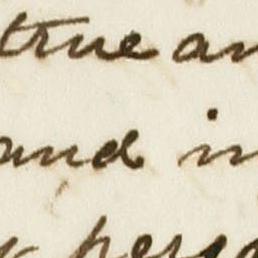 true an
and in
perso